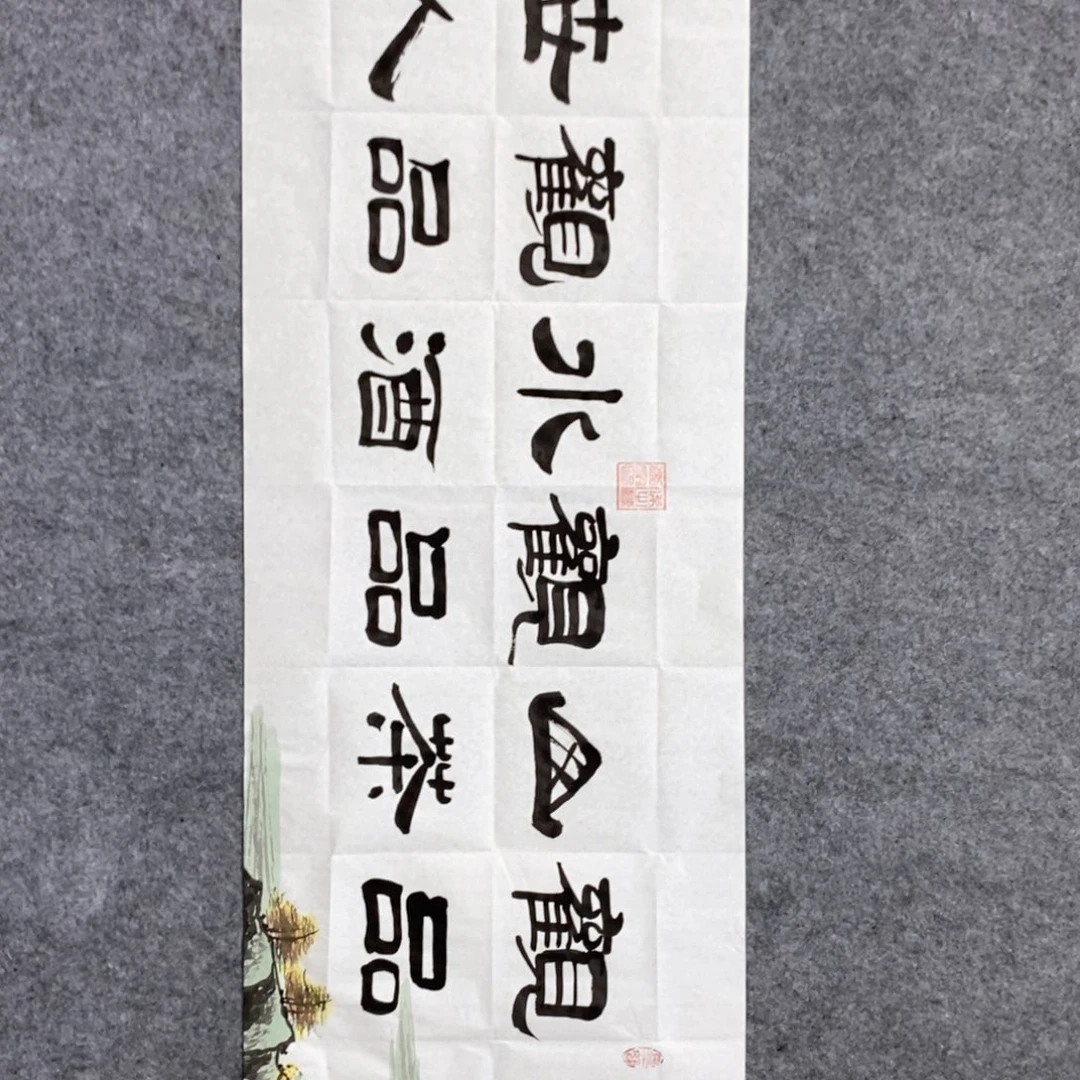 觀山觀水觀世
品茶品酒品人